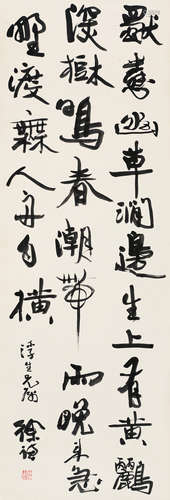 獨憐幽草澗邊生上有黃鸝
深樹鳴春潮帶雨晚來急
野渡無人舟自橫
浮生兄
徐